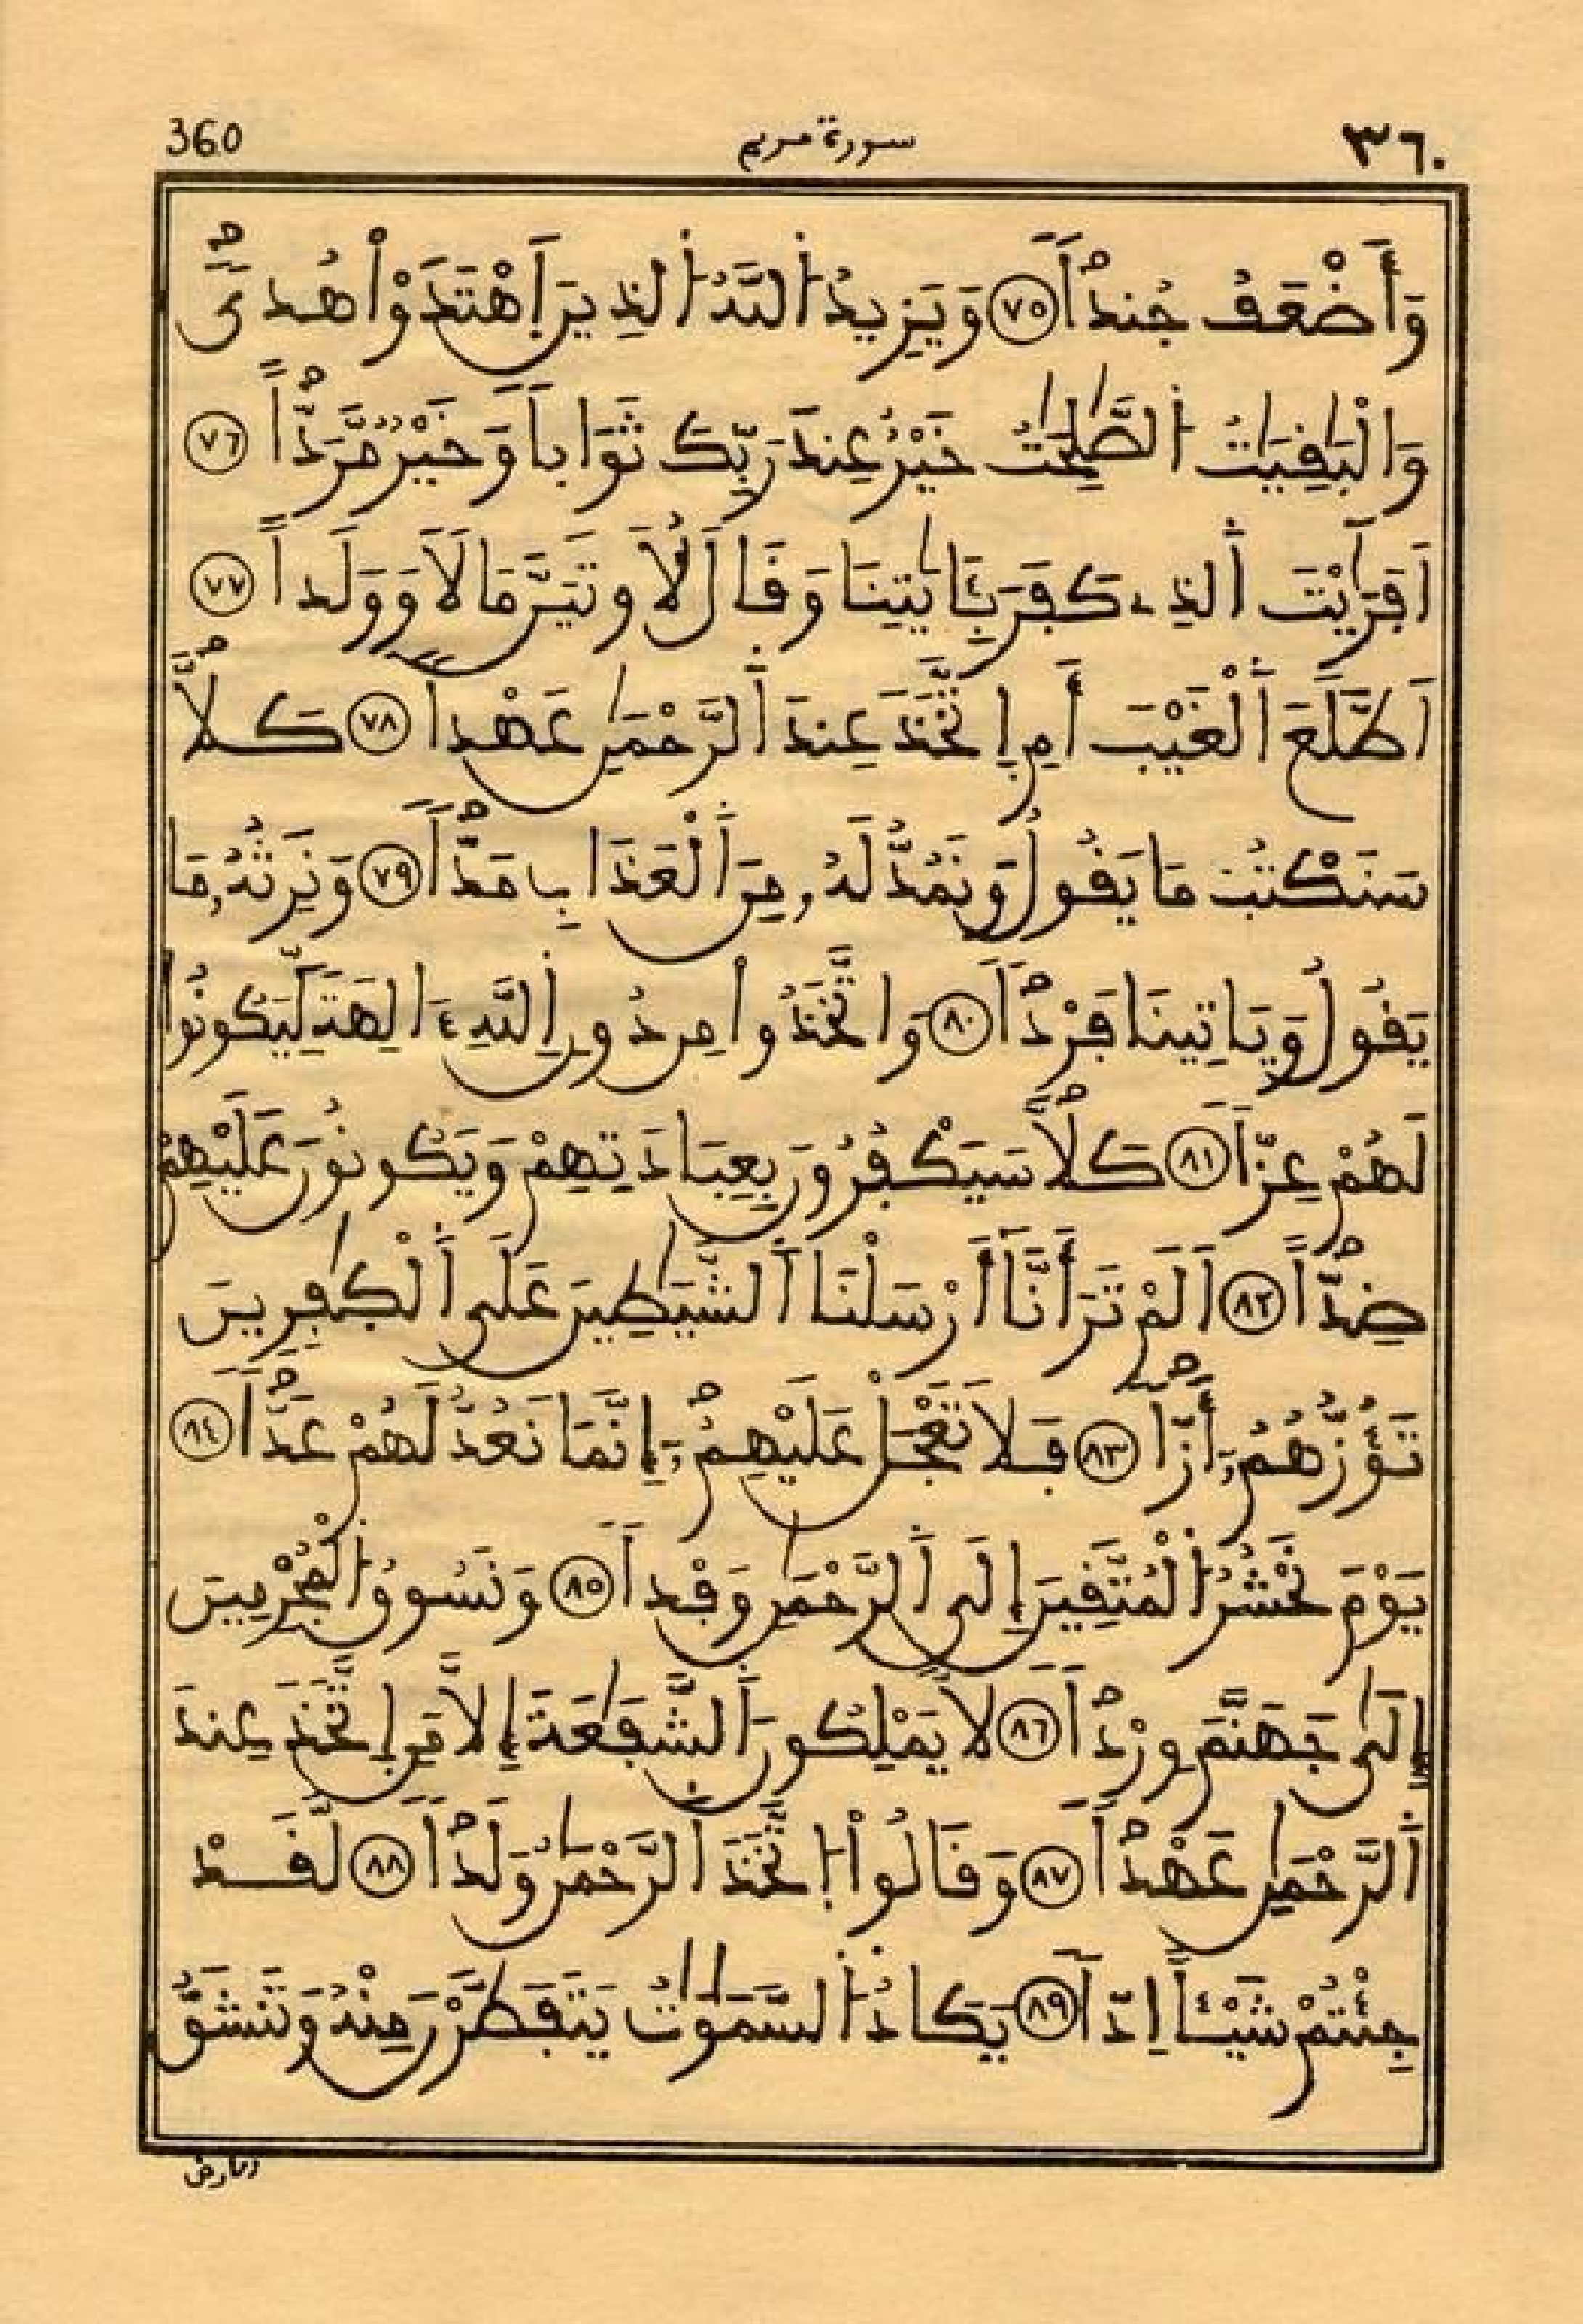 360 سورة مريم ٣٦٠
وَأَضْعَفُ جُنداً ٧٥ وَيَزِيدُ اُللَّهُ اُلذِينَ اَهْتَدَوْاْ هُدىً
وَالْبَٰفِيَٰتُ اُلصَّٰلِحَٰتُ خَيْرٌ عِندَ رَبِّكَ ثَوَاباً وَخَيْرٌ مَّرَدّاً ٧٦
اَفَرَٰيْتَ اَلذِے كَفَرَ بِـَٔايَٰتِنَا وَقَالَ لُأوتَيَنَّ مَالًا وَوَلَداً ٧٧
اَطَّلَعَ اَلْغَيْبَ أَمِ اِتَّخَذَ عِندَ اَلرَّحْمَٰنِ عَهْداً ٧٨ كَلَّا
سَنَكْتُبُ مَا يَقُولُ وَنَمُدُّ لَهُۥ مِنَ اَلْعَذَابِ مَدّاً ٧٩ وَنَرِثُهُۥ مَا
يَقُولُ وَيَاتِينَا فَرْداً ٨٠ وَاتَّخَذُواْ مِن دُونِ اِللَّهِ ءَالِهَةً لِّيَكُونُواْ
لَهُمْ عِزّاً ٨١ كَلَّا سَيَكْفُرُونَ بِعِبَادَتِهِمْ وَيَكُونُونَ عَلَيْهِمْ
ضِدّاً ٨٢ اَلَمْ تَرَ أَنَّا أَرْسَلْنَا اَلشَّيَٰطِينَ عَلَى اَلْكٰفِرِينَ
تَؤُزُّهُمُۥ أَزّاً ٨٣ فَلَا تَعْجَلْ عَلَيْهِمُۥ إِنَّمَا نَعُدُّ لَهُمْ عَدّاً ٨٤
يَوْمَ نَحْشُرُ اُلْمُتَّقِينَ إِلَى اَلرَّحْمَٰنِ وَفْداً ٨٥ وَنَسُوقُ اُلْمُجْرِمِينَ
إِلَىٰ جَهَنَّمَ وِرْداً ٨٦ لَّا يَمْلِكُونَ اَلشَّفَٰعَةَ إِلَّا مَنِ اِتَّخَذَ عِندَ
اَلرَّحْمَٰنِ عَهْداً ٨٧ وَقَالُواْ اُتَّخَذَ اَلرَّحْمَٰنُ وَلَداً ٨٨ لَّقَدْ
جِئْتُمْ شَيْـٔاً اِدّاً ٨٩ يَكَادُ اُلسَّمَٰوَٰتُ يَتَفَطَّرْنَ مِنْهُ وَتَنشَقُّ
الارض